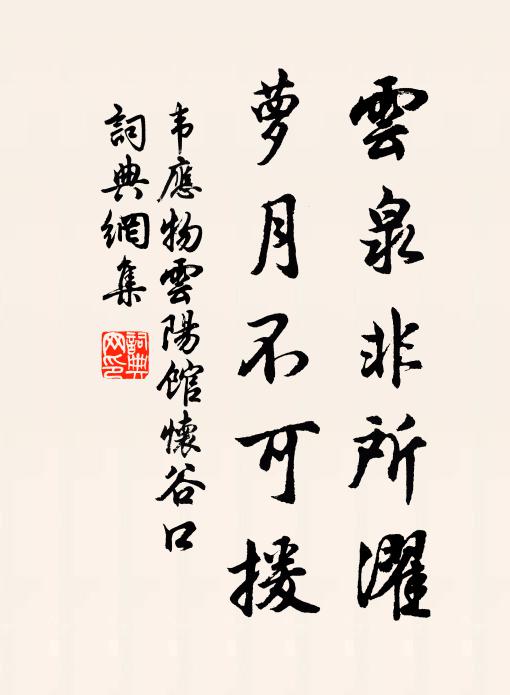 雲泉非所濯
萝月不可援
韦應物雲陽馆懷谷口
詞典網集
詞典网印